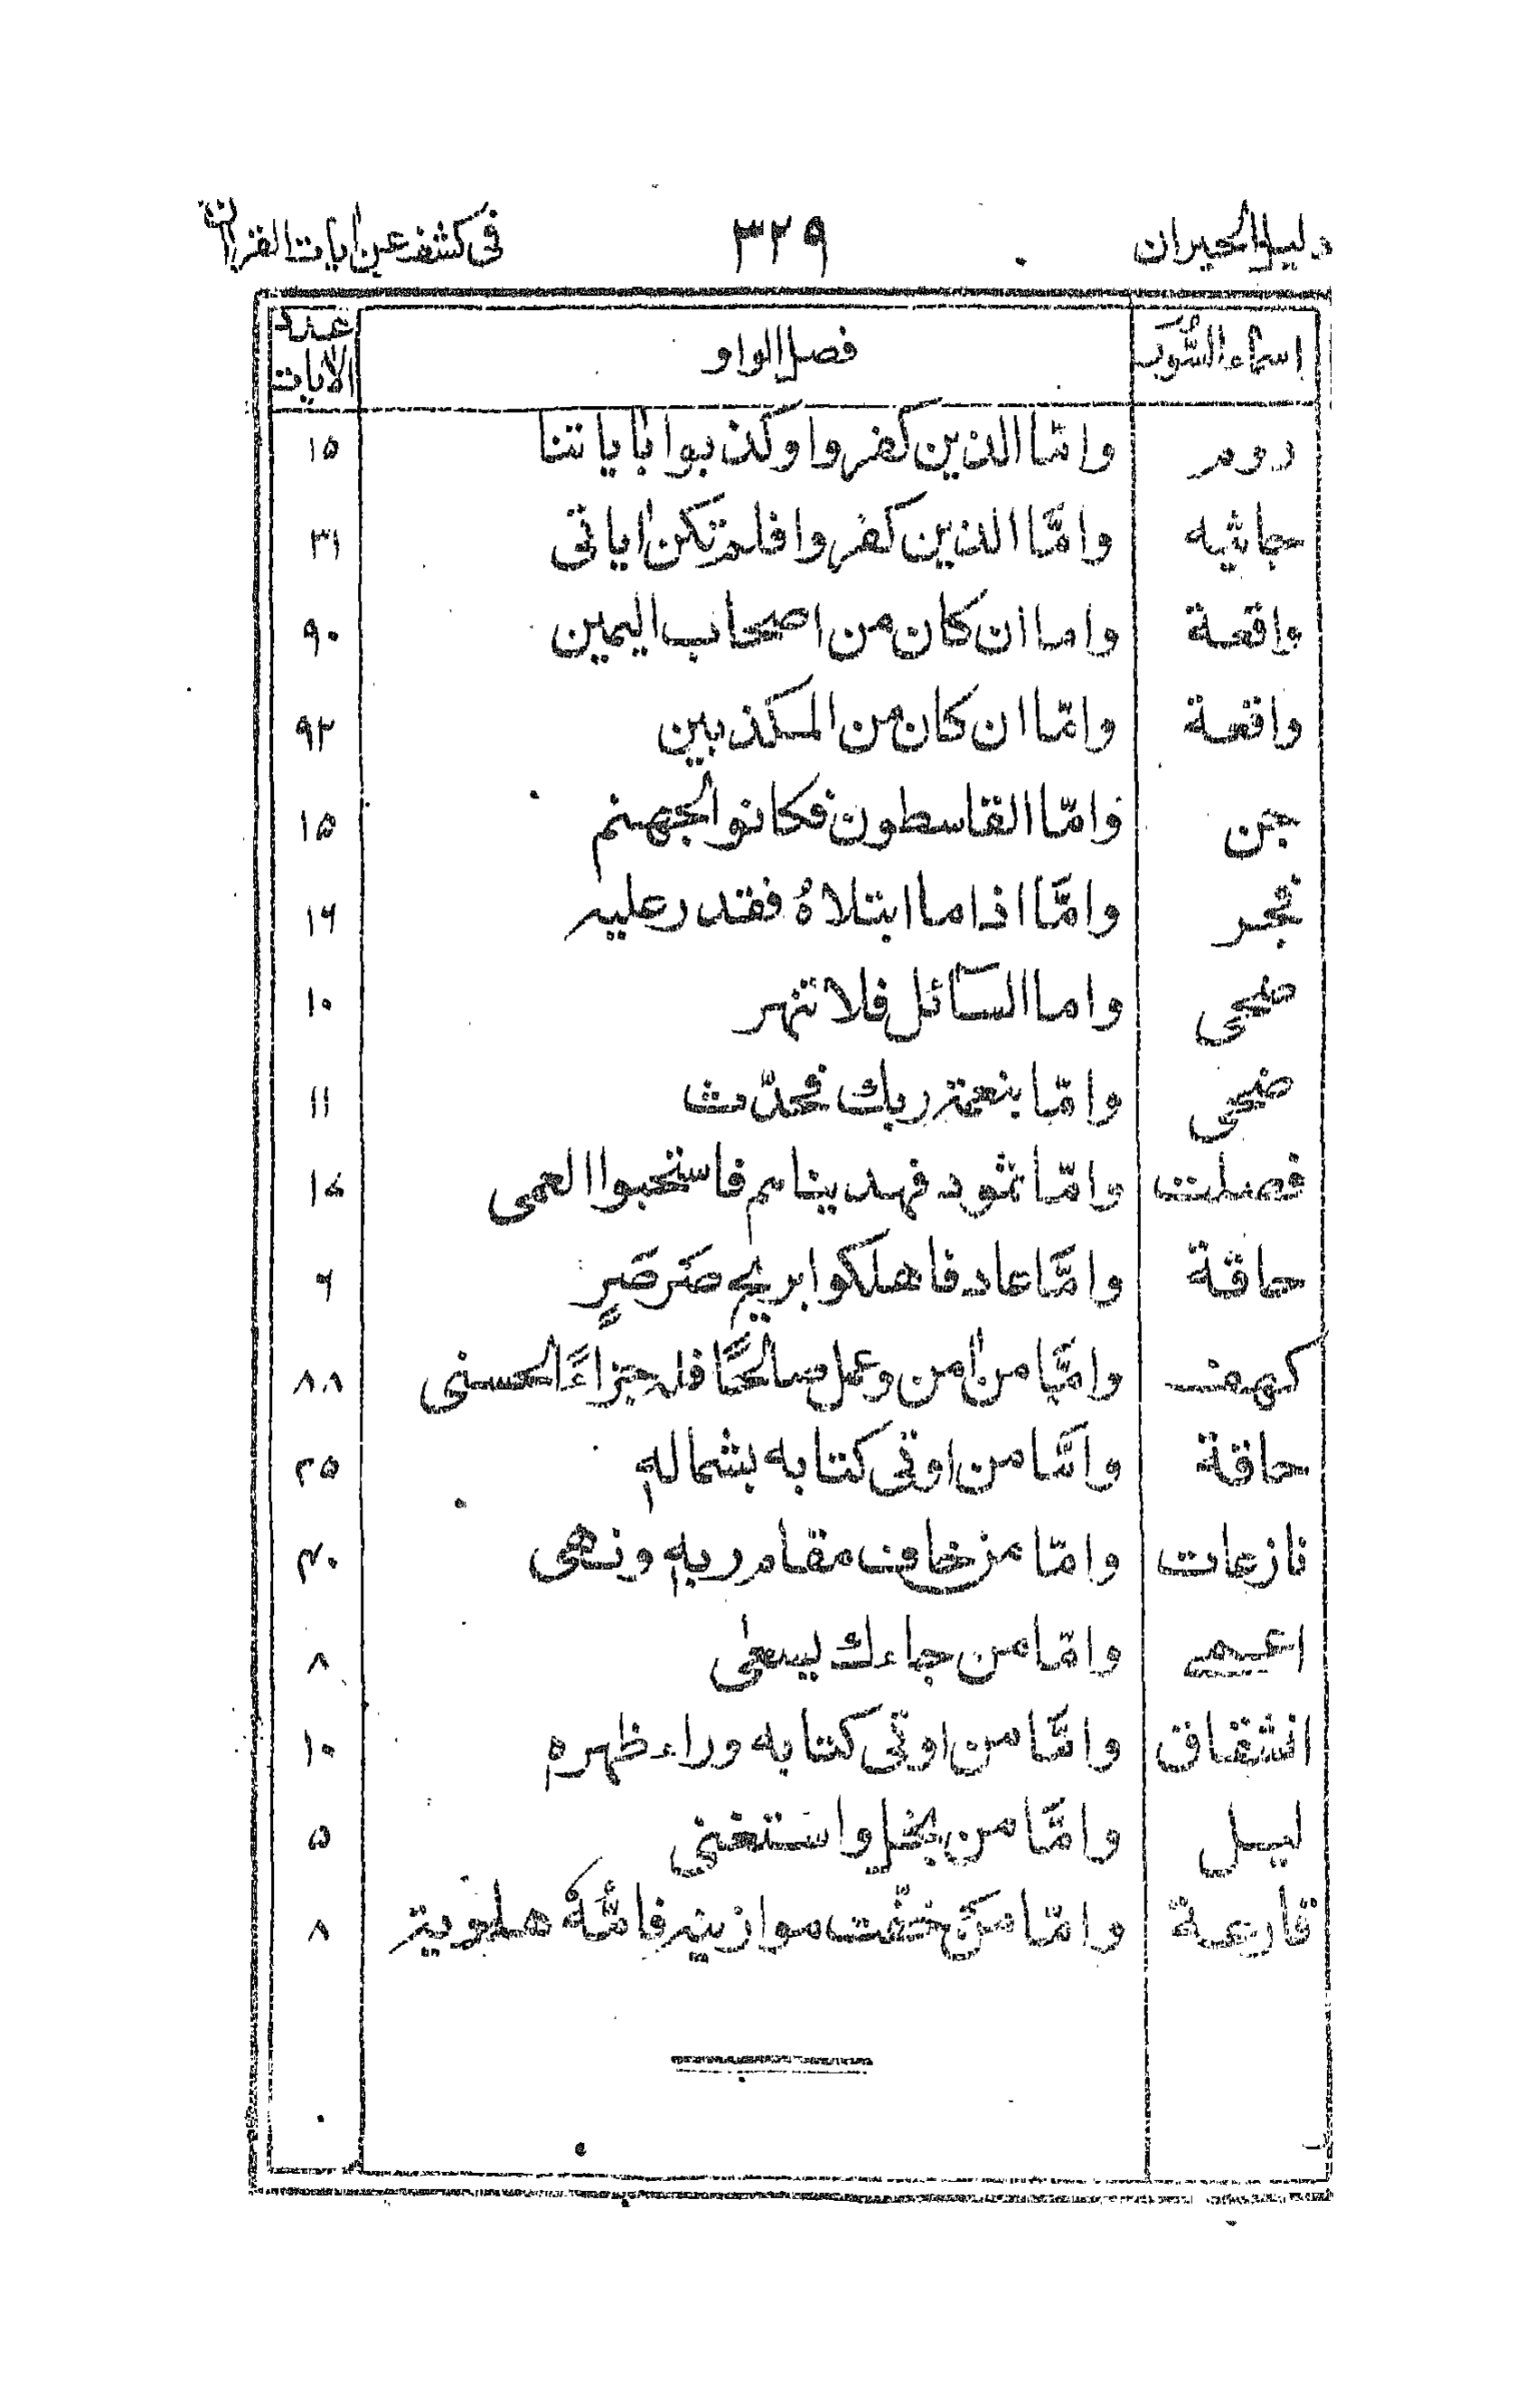 دليل الحيران ٣٢٩ فى كشف عن ايات القران
اسماء السُّوَر فصل الواو عدد الايات
روم وامّا الذين كفروا وكذبوا باياتنا ١٥
جاثيه وامَّا الذين كفروا فلم تكن اياتى ٣١
واقعة واما ان كان من اصحاب اليمين ٩٠
واقعة وامّا ان كان من المكذبين ٩٢
جن وامّا القاسطون فكانوا لجهنم ١٥
فجر وامَّا اذا ما ابتلاهُ فقدر عليه ١٦
ضحى واما السَائل فلا تنهر ١٠
ضحى وامّا بنعمة ربك فحدّث ١١
فصلت وامّا ثمود فهديناهم فاستحبوا العمى ١٧
حاقة وامَّا عاد فاهلكوا بريح صَرصَرٍ ٦
كهف وامَّا من امن وعمل صالحًا فله جزاءً الحسنى ٨٨
حاقة وامَّا من اوتى كتابه بشماله ٢٥
نازعات وامّا من خاف مقام ربه ونهى ٤٠
اعمى وامّا من جاءك يسعى ٨
انشقاق وامَّا من اوتى كتابه وراء ظهره ١٠
ليل وامَّا من بخل واستغنى ٥
قارعة وامّا مَنْ خفّت موازينه فامُّهُ هاوية ٨